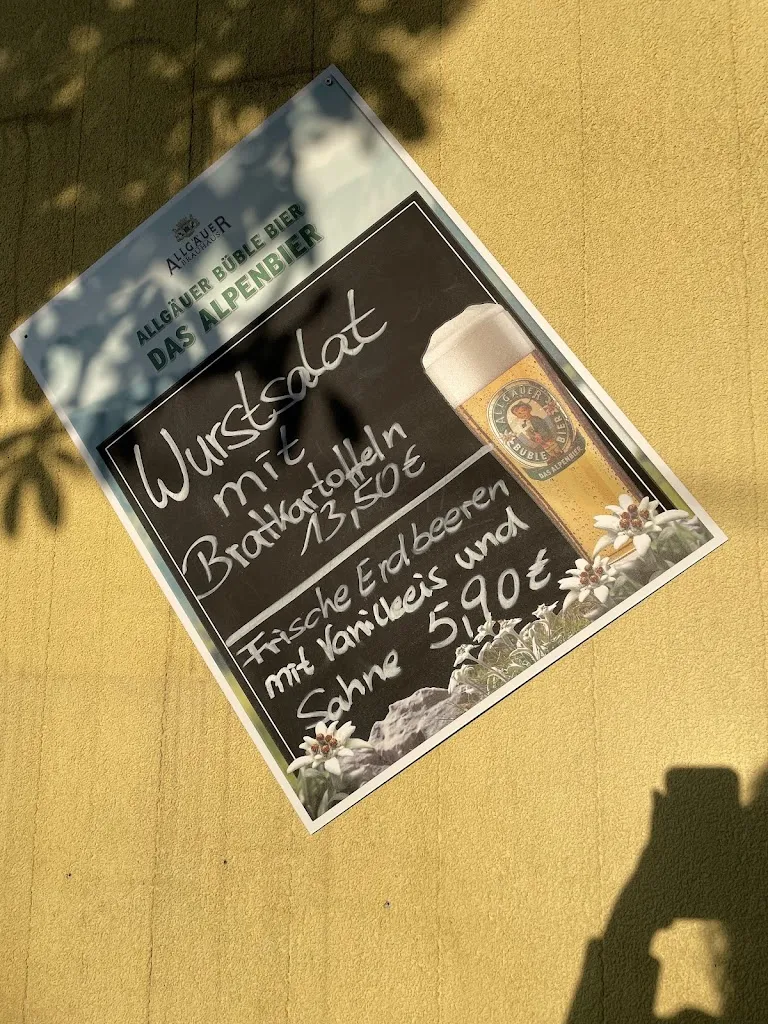 ALLGÄUER
BRAUHAUS
ALLGÄUER BÜBLE BIER
DAS ALPENBIER
Wurstsalat
mit
Bratkartoffeln
13,50€
Frische Erdbeeren
mit Vanilleeis und
Sahne 5,90€
ALLGÄUER
BÜBLE BIER
DAS ALPENBIER